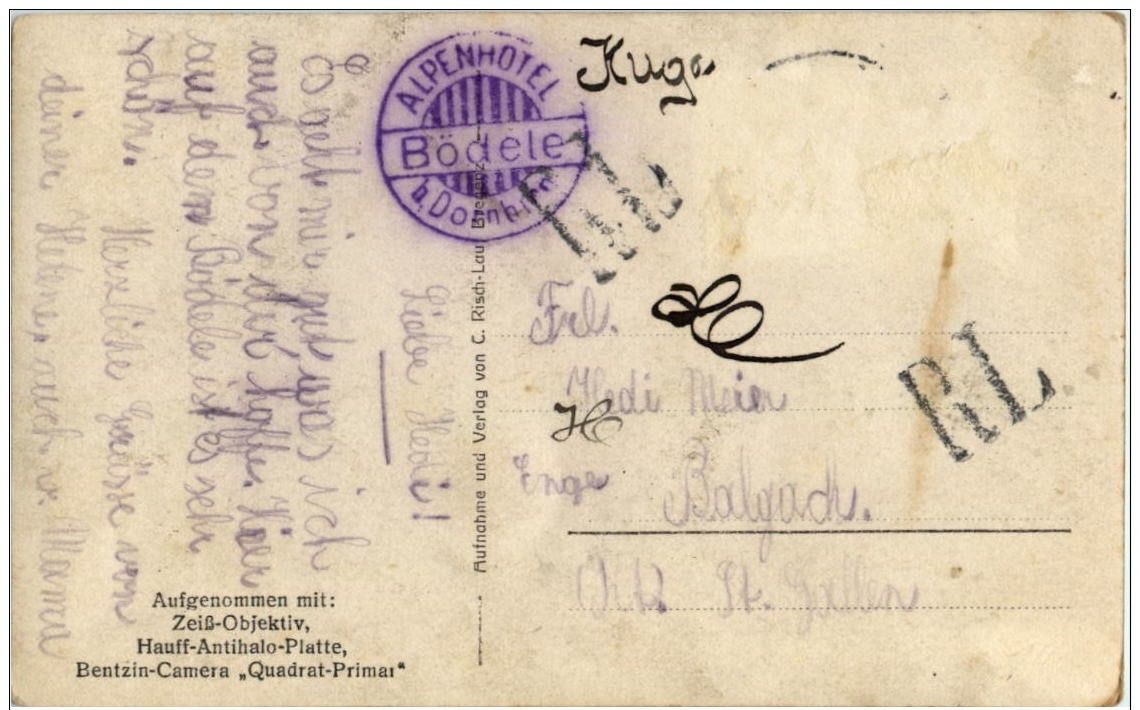 Liebe Hedi!
Es geht mir gut was ich
auch von dir hoffe. Hier
auf dem Bödele ist es sehr
schön.
Herzliche Grüsse von
deiner Helene, auch v. Maman
ALPENHOTEL
Bödele
b. Dornbirn
Aufnahme und Verlag von C. Risch-Lau, Bregenz
Hugo
RL
Frl.
Hedi Meier
H
Enge
Balgach.
Kt. St. Gallen
RL
Aufgenommen mit:
Zeiß-Objektiv,
Hauff-Antihalo-Platte,
Bentzin-Camera „Quadrat-Primar"